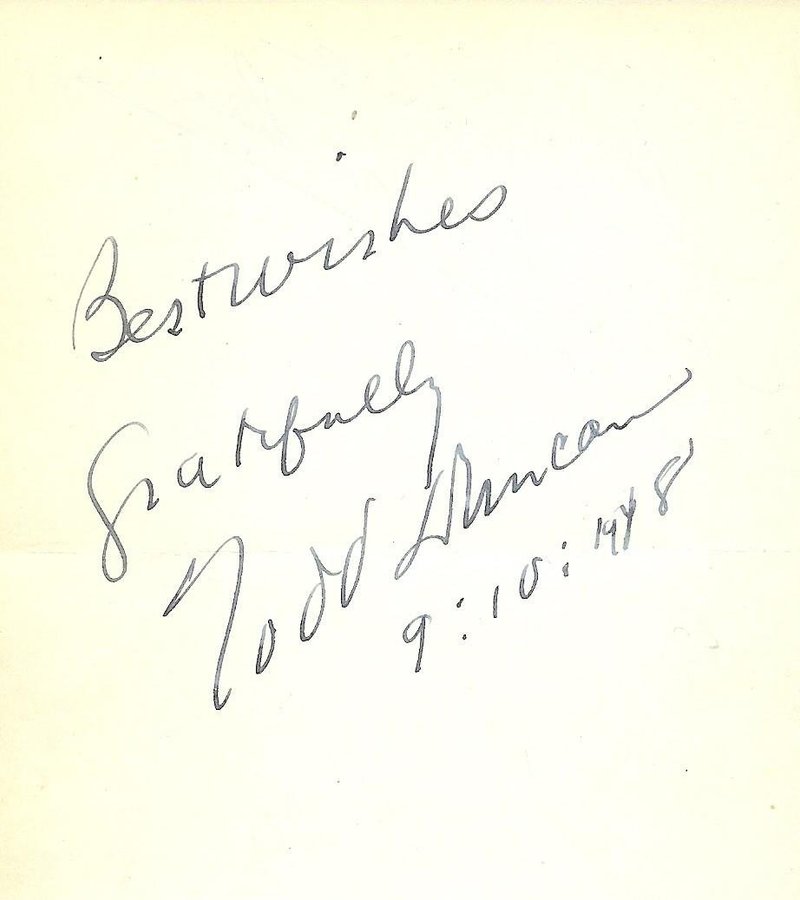 Best wishes
gratefully
Todd Duncan
9:10:1948